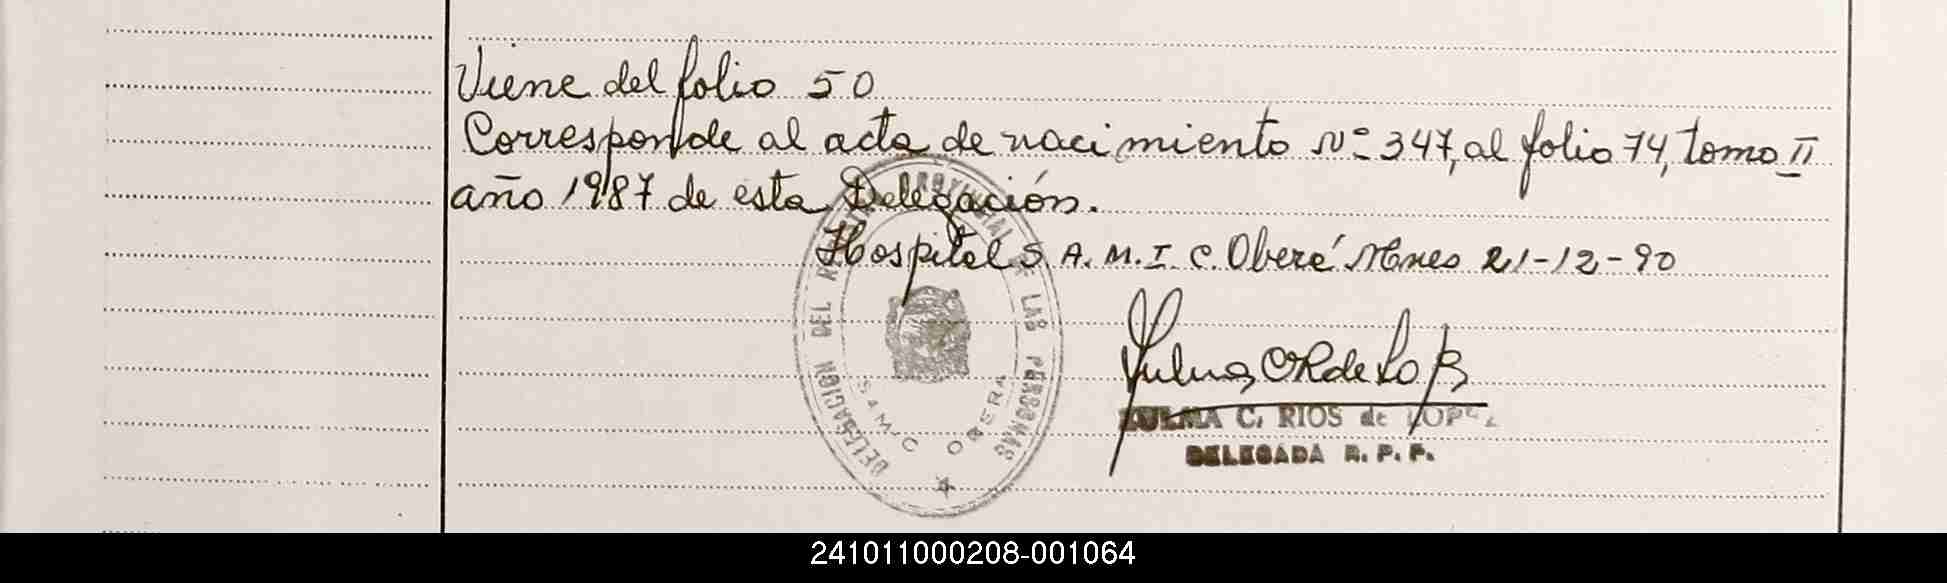 Viene del folio 50
Corresponde al acta de nacimiento Nº 347, al folio 74, tomo II
año 1987 de esta Delegación.
Hospital S.A.M.I.C. Oberá Mnes 21-12-90
ZULMA C. RIOS de LOPEZ
DELEGADA R. P. P.
DELEGACION DEL REGISTRO PROVINCIAL DE LAS PERSONAS
SAMIC OBERA
241011000208-001064